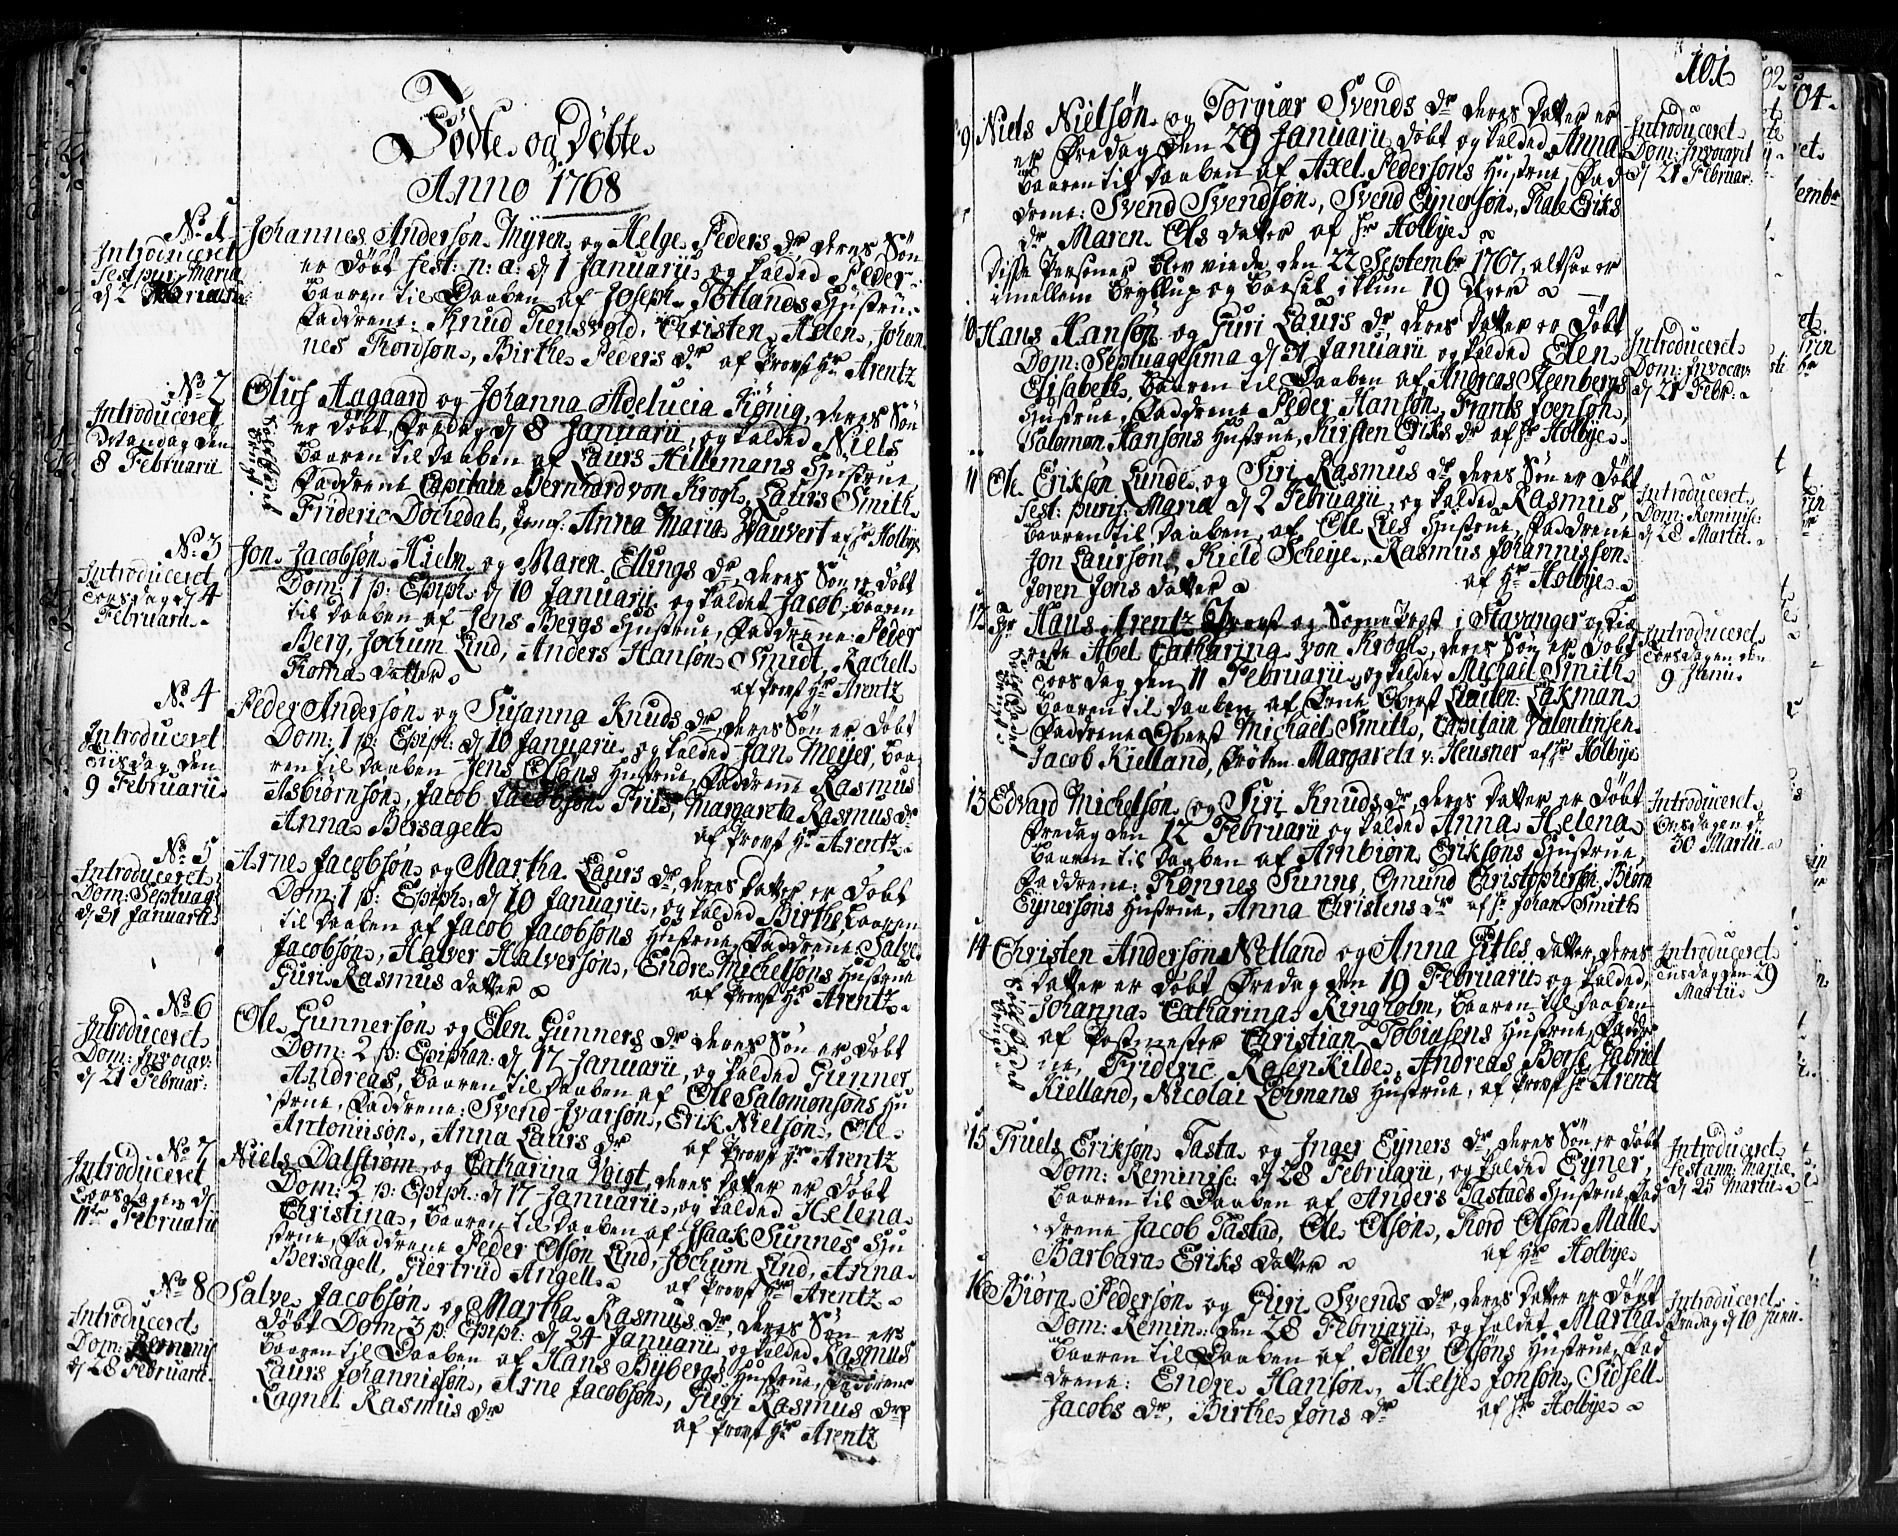 Fødte og Døbte
Anno 1768
No 1
Introduceret
fest pur: Maria
d 2 Februarii
Johannes Anderson Myren og Helge Peders dr deres Søn
er døbt fest: n: a: d 1 Januarii og kalded Peder
baaren til Daaben af Joseph Totlands Hustrue
Faddrene: Knud Tiensvold, Christen Helen, Johan
nes Thordson, Birthe Peders dr af Provst Hr Arentz
No 2
Introduceret
Mandag den
8 Februarii
Oluf Aagaard og Johanna Adelucia König, deres Søn
er døbt, Fredag d 8 Januarii, og kalded Niels
baaren til Daaben af Laurs Hillemans Hustrue
Faddrene Capitain Bernhard von Krogh, Laurs Smith
Frideric Dochedal, Jomf: Anna Maria Wauvert af Hr Holbye
No 3
Introduceret
Torsdag d 4
Februarii
Jon Jacobsøn Hielm og Maren Ellings dr, deres Søn er døbt
Dom: 1 p: Epiph: d 10 Januarii og kaldet Jacob, baaren
til daaben af Jens Bergs Hustrue, Faddrene: Peder
Berg, Jochum Lind, Anders Hanson Smidt, Rachell
Thoma datter
af Provst Hr Arentz
No 4
Introduceret
Onsdag den
9 Februarii
Peder Anderson og Susanna Knuds dr, deres Søn er døbt
Dom: 1 p: Epiph: d 10 Januarii og kalded Jan Meyer, baa
ren til daaben Jens Olsons Hustrue, Faddrene Rasmus
Asbiørnson, Jacob Jacobson Friis, Margareta Rasmus dr
Anna Bersagell
af Provst Hr Arentz
No 5
Introduceret
Dom: Septuag:
d 31 Januarii
Arne Jacobsøn og Martha Laurs dr, deres datter er døbt
Dom: 1 p: Epiph: d 10 Januarii, og kalded Birthe, baaren
til daaben af Jacob Jacobsons Hustrue, Faddrene: Salve
Jacobsøn, Halver Halverson, Endre Michelsons Hustrue
Guri Rasmus datter
af Provst Hr Arentz
No 6
Introduceret
Dom: Invocav:
d 21 Februar:
Ole Gunnerson og Elen Gunners dr deres Søn er døbt
Dom: 2 p: Epiphan: d 17 Januarii, og kalded Gunner
Andreas, baaren til daaben af Ole Salomonsons Hu
strue, Faddrene: Svend Ivarson, Erik Nielson, Ole
Antoniison, Anna Laurs dr
af Provst Hr Arentz
No 7
Introduceret
Torsdagen d
11te Februarii
Niels Dalstrøm og Catharina Voigt, deres datter er døbt
Dom: 2 p: Epiph: d 17 Januarii, og kalded Helena
Christina, baaren til daaben af Isaak Sunnes Hu
strue, Faddrene Peder Olson Lind, Jochum Lind, Anna
Bersagell, Giertrud Angell
af Provst Hr Arentz
No 8
Introduceret
Dom: Reminis
d 28 Februarii
Salve Jacobsøn og Martha Rasmus dr, deres Søn er
døbt Dom 3 p: Epiph: d 24 Januarii og kalded Rasmus
baaren til Daaben af Hans Bybergs Hustrue, Faddrene
Laurs Johannisson, Arne Jacobson, Guri Rasmus dr
Ragnel Rasmus dr
af Provst Hr Arentz
101
9 Niels Nielsøn og Torgier Svends dr deres datter er
er Fredag den 29 Januarii døbt og kalded Anna
baaren til Daaben af Axel Pedersøns Hustrue, Fad
drene: Svend Svendsøn, Svend Eynersøn, Kale Eriks
dr Maren Ols datter af Hr Holbye
Disse Personer blev viede den 22 Septembr 1767, altsaa er
imellem Bryllup og Barsel ikkun 19 Uger
Introduceret
Dom: Invocavit
d 21 Februar:
10 Hans Hansøn og Guri Laurs dr, deres datter er døbt
Dom: Septuagesima d 31 Januarii og kalded Elen
Elisabeth, baaren til Daaben af Andreas Steenbergs
Hustrue, Faddrene Peder Hansøn, Frants Joensøn,
Salomon Hansøns Hustrue, Kirsten Eriks dr af Hr Holbye
Introduceret
Dom: Invocav
d 21 Febr:
11 Ole Erikson Lunde og Siri Rasmus dr deres Søn er døbt
fest: purif: Maria d 2 Februarii, og kalded Rasmus,
baaren til Daaben af Ole Lies Hustrue, Faddrene
Jon Laurson, Kield Scheye, Rasmus Johannisson
Joren Jons datter
af Hr Holbye
Introduceret
Dom: Reminis:
d 28 Martii
12 Hr Hans Arentz Provst og Sogne Præst i Stavanger og Kiæ
reste Abel Catharina von Krogh, deres Søn er døbt
Torsdag den 11 Februarii, og kalded Michael Smith
baaren til Daaben af Frue Oberst Leiten: Lakman
Faddrene Oberst Michael Smith, Capitain Valentinsen
Jacob Kielland, Frøken Margareta v: Heusner af Hr Holbye
Introduceret
Torsdagen den
9 Junii
13 Edvard Michelsøn og Siri Knuds dr, deres datter er døbt
Fredag den 12 Februarii og kalded Anna Helena
baaren til Daaben af Arnbiørn Eriksøns Hustrue,
Faddrene: Thønnes Sunne, Omund Christophersøn, Biørn
Eynersøns Hustrue, Anna Christens dr af Hr Johan Smith
Introduceret
Onsdagen d
30 Martii
14 Christen Andersøn Netland og Anna Gitles datter, deres
datter er døbt Fredag den 19 Februarii og kalded
Johanna Catharina Ringholm, baaren til daaben
af Postmester Christian Tobiasens Hustrue, Faddre
ne, Frideric Rosenkilde, Andreas Borse, Gabriel
Kielland, Nicolai Lormans Hustrue, af Provst Hr Arentz
Introduceret
Tirsdagen 29
Martii
15 Truels Erikson Tasta og Inger Eyners dr deres Søn er døbt
Dom: Reminisc: d 28 Februarii, og kalded Eyner,
baaren til Daaben af Anders Tastads Hustrue, Fad
drene Jacob Tastad, Ole Olson, Thord Olson, Malle
Barbara Eriks datter
af Hr Holbye
Introduceret
fest ann: Mariæ
d 25 Martii
16 Biørn Pedersøn og Guri Svends dr, deres datter er døbt
Dom: Remin: den 28 Februarii, og kaldet Martha
baaren til Daaben af Tollev Olsøns Hustrue, Fad
drene: Endre Hansøn, Helje Jonsøn, Sidsell
Jacobs dr, Birthe Jons dr
af Hr Holbye
Introduceret
Fredag d 10 Junii